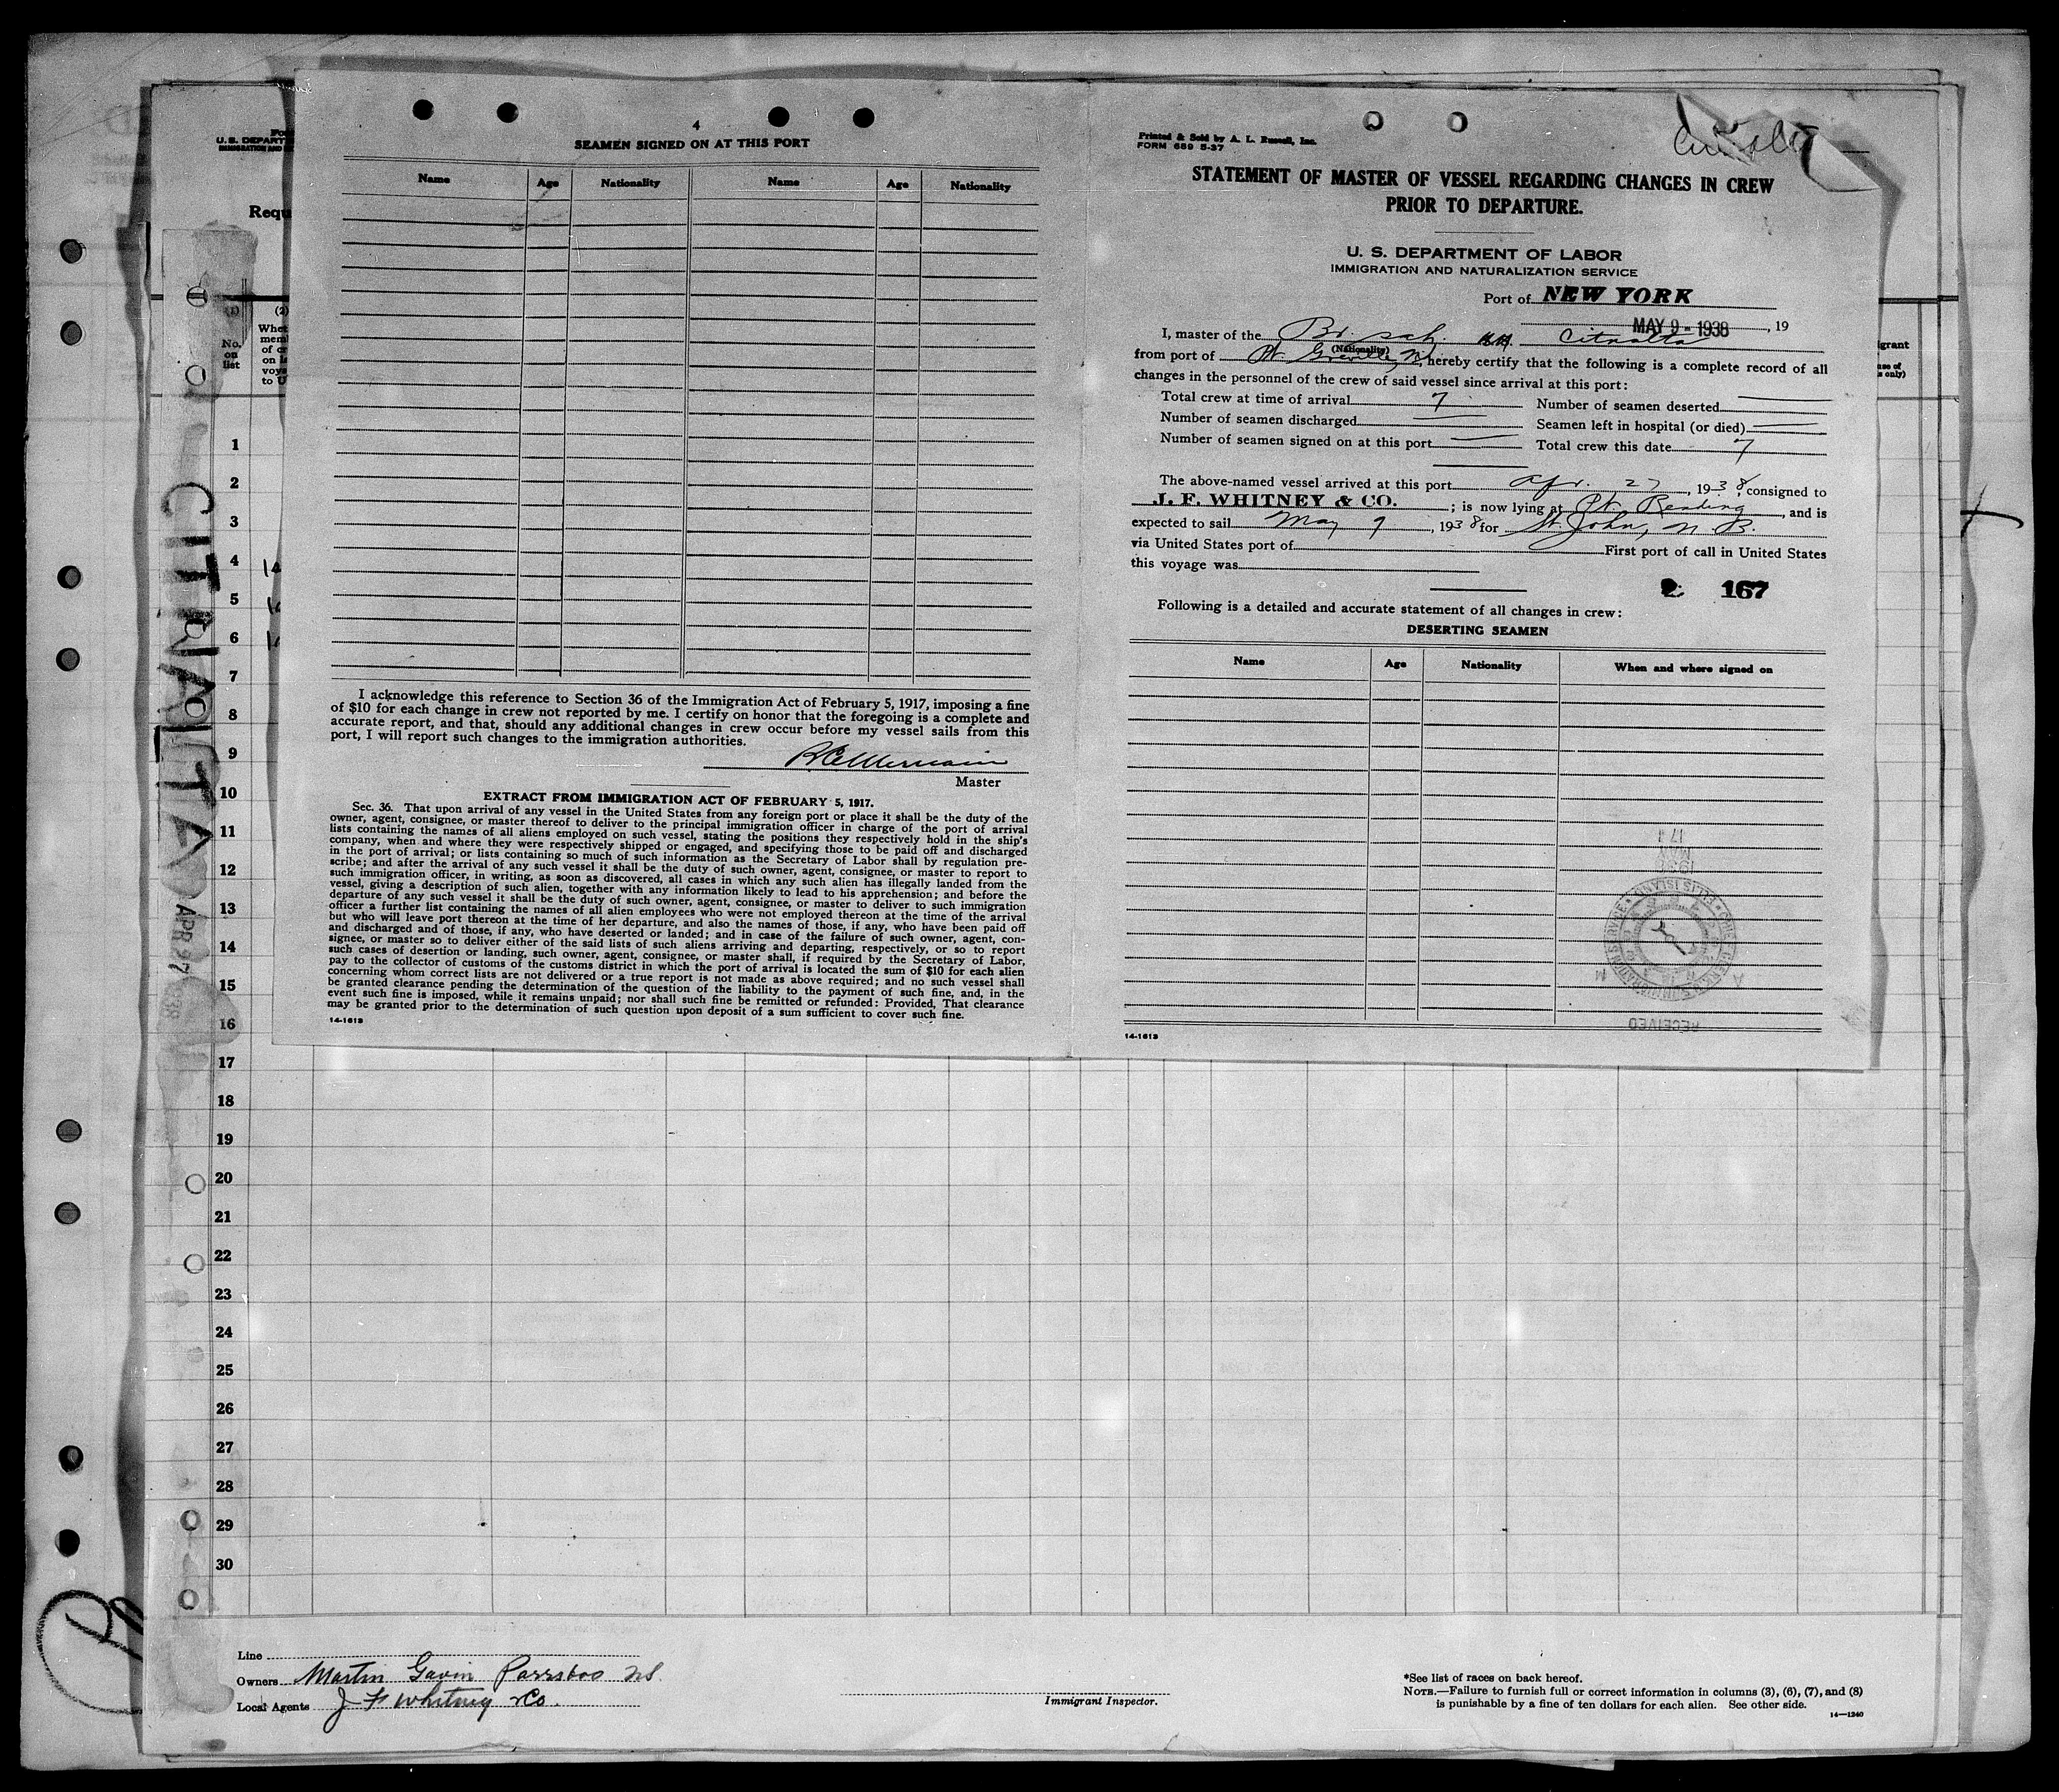 4
SEAMEN SIGNED ON AT THIS PORT
Name Age Nationality Name Age Nationality
I acknowledge this reference to Section 36 of the Immigration Act of February 5, 1917, imposing a fine
of $10 for each change in crew not reported by me. I certify on honor that the foregoing is a complete and
accurate report, and that, should any additional changes in crew occur before my vessel sails from this
port, I will report such changes to the immigration authorities.
Master
EXTRACT FROM IMMIGRATION ACT OF FEBRUARY 5, 1917.
Sec. 36. That upon arrival of any vessel in the United States from any foreign port or place it shall be the duty of the
owner, agent, consignee, or master thereof to deliver to the principal immigration officer in charge of the port of arrival
lists containing the names of all aliens employed on such vessel, stating the positions they respectively hold in the ship's
company, when and where they were respectively shipped or engaged, and specifying those to be paid off and discharged
in the port of arrival; or lists containing so much of such information as the Secretary of Labor shall by regulation pre-
scribe; and after the arrival of any such vessel it shall be the duty of such owner, agent, consignee, or master to report to
such immigration officer, in writing, as soon as discovered, all cases in which any such alien has illegally landed from the
vessel, giving a description of such alien, together with any information likely to lead to his apprehension; and before the
departure of any such vessel it shall be the duty of such owner, agent, consignee, or master to deliver to such immigration
officer a further list containing the names of all alien employees who were not employed thereon at the time of the arrival
but who will leave port thereon at the time of her departure, and also the names of those, if any, who have been paid off
and discharged and of those, if any, who have deserted or landed; and in case of the failure of such owner, agent, con-
signee, or master so to deliver either of the said lists of such aliens arriving and departing, respectively, or so to report
such cases of desertion or landing, such owner, agent, consignee, or master shall, if required by the Secretary of Labor,
pay to the collector of customs of the customs district in which the port of arrival is located the sum of $10 for each alien
concerning whom correct lists are not delivered or a true report is not made as above required; and no such vessel shall
be granted clearance pending the determination of the question of the liability to the payment of such fine, and, in the
event such fine is imposed, while it remains unpaid; nor shall such fine be remitted or refunded: Provided, That clearance
may be granted prior to the determination of such question upon deposit of a sum sufficient to cover such fine.
14-1613
Printed & Sold by A. L. Russell, Inc.
FORM 689 5-37
STATEMENT OF MASTER OF VESSEL REGARDING CHANGES IN CREW
PRIOR TO DEPARTURE.
U. S. DEPARTMENT OF LABOR
IMMIGRATION AND NATURALIZATION SERVICE
Port of NEW YORK
MAY 9 - 1938, 19
I, master of the Br. sch. Citnalta
(Nationality)
from port of Pt. Greville, hereby certify that the following is a complete record of all
changes in the personnel of the crew of said vessel since arrival at this port:
Total crew at time of arrival 7 Number of seamen deserted
Number of seamen discharged Seamen left in hospital (or died)
Number of seamen signed on at this port Total crew this date 7
The above-named vessel arrived at this port Apr. 27, 1938, consigned to
J. F. WHITNEY & CO.; is now lying at Pt. Reading, and is
expected to sail May 9, 1938 for St. John, N. B.
via United States port of First port of call in United States
this voyage was
167
Following is a detailed and accurate statement of all changes in crew:
DESERTING SEAMEN
Name Age Nationality When and where signed on
RECEIVED
ELLIS ISLAND
14-1613
U. S. DEPART
Requ
(1) (2)
No.
on
list
Whet
mem
of cr
on l
voya
to U
grant
s only)
CITNALTA
APR 27 1938
1
2
3
4
5
6
7
8
9
10
11
12
13
14
15
16
17
18
19
20
21
22
23
24
25
26
27
28
29
30
Line
Owners Martin Gavin Parrsboro NS.
Local Agents J F Whitney & Co.
Immigrant Inspector.
*See list of races on back hereof.
NOTE.—Failure to furnish full or correct information in columns (3), (6), (7), and (8)
is punishable by a fine of ten dollars for each alien. See other side.
14—1240